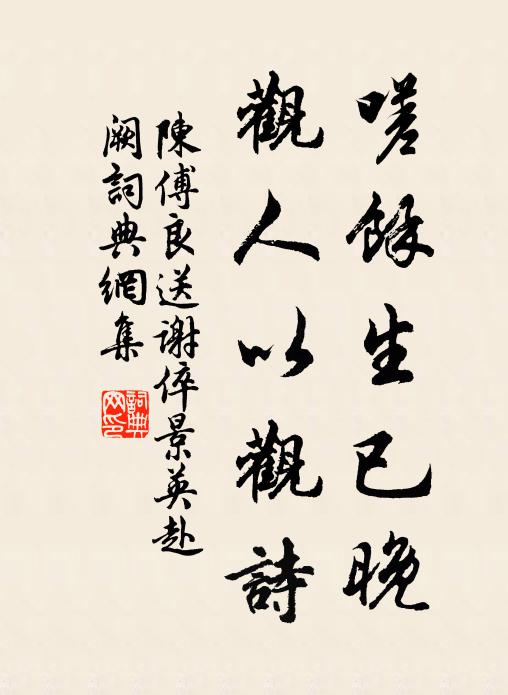 嗟餘生已晚
觀人以觀詩
陳傅良送謝倅景英赴
闕詞典網集
詞典
网印